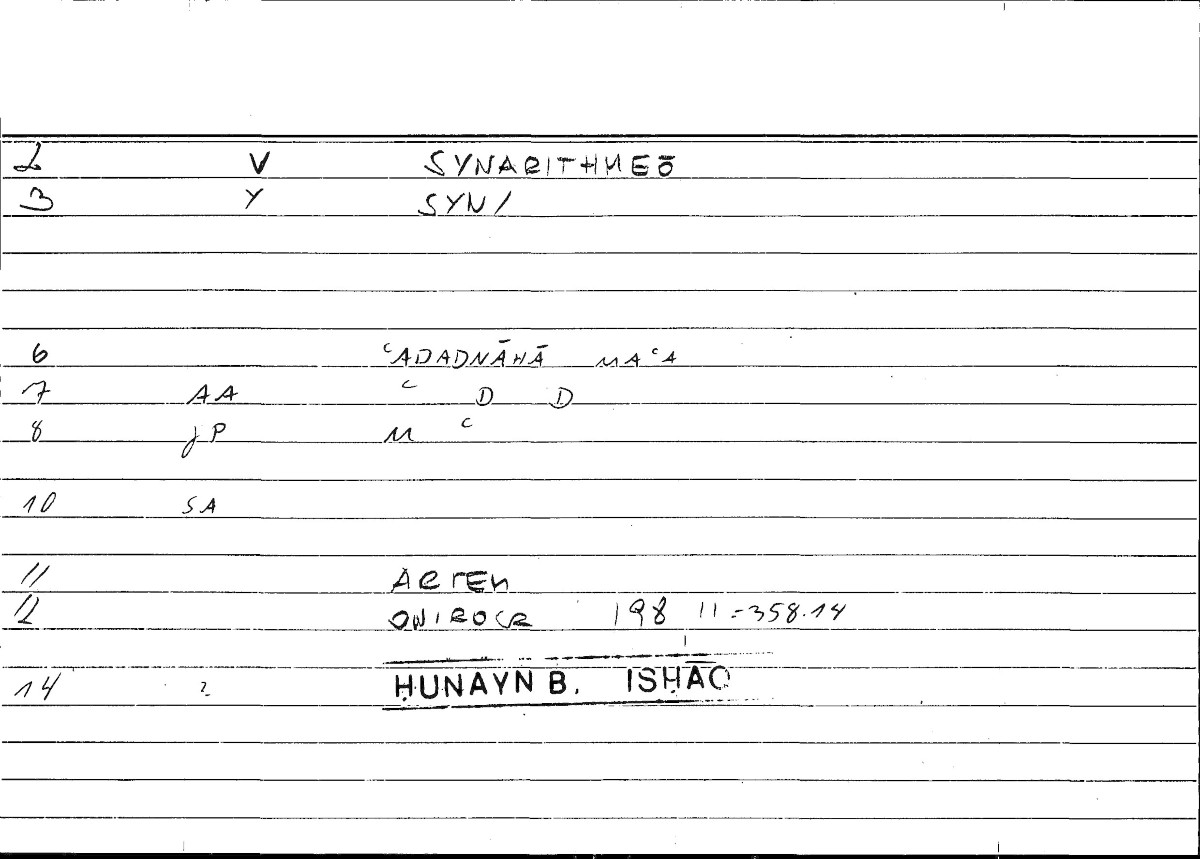 2 V SYNARITHMEŌ
3 Y SYN/
6 ᶜADADNĀHĀ MAᶜA
7 AA ᶜ D D
8 JP M ᶜ
10 SA
11 ARTEM
12 ONIROCR 198 11 = 358.14
14 2 ḤUNAYN B. ISḤĀQ